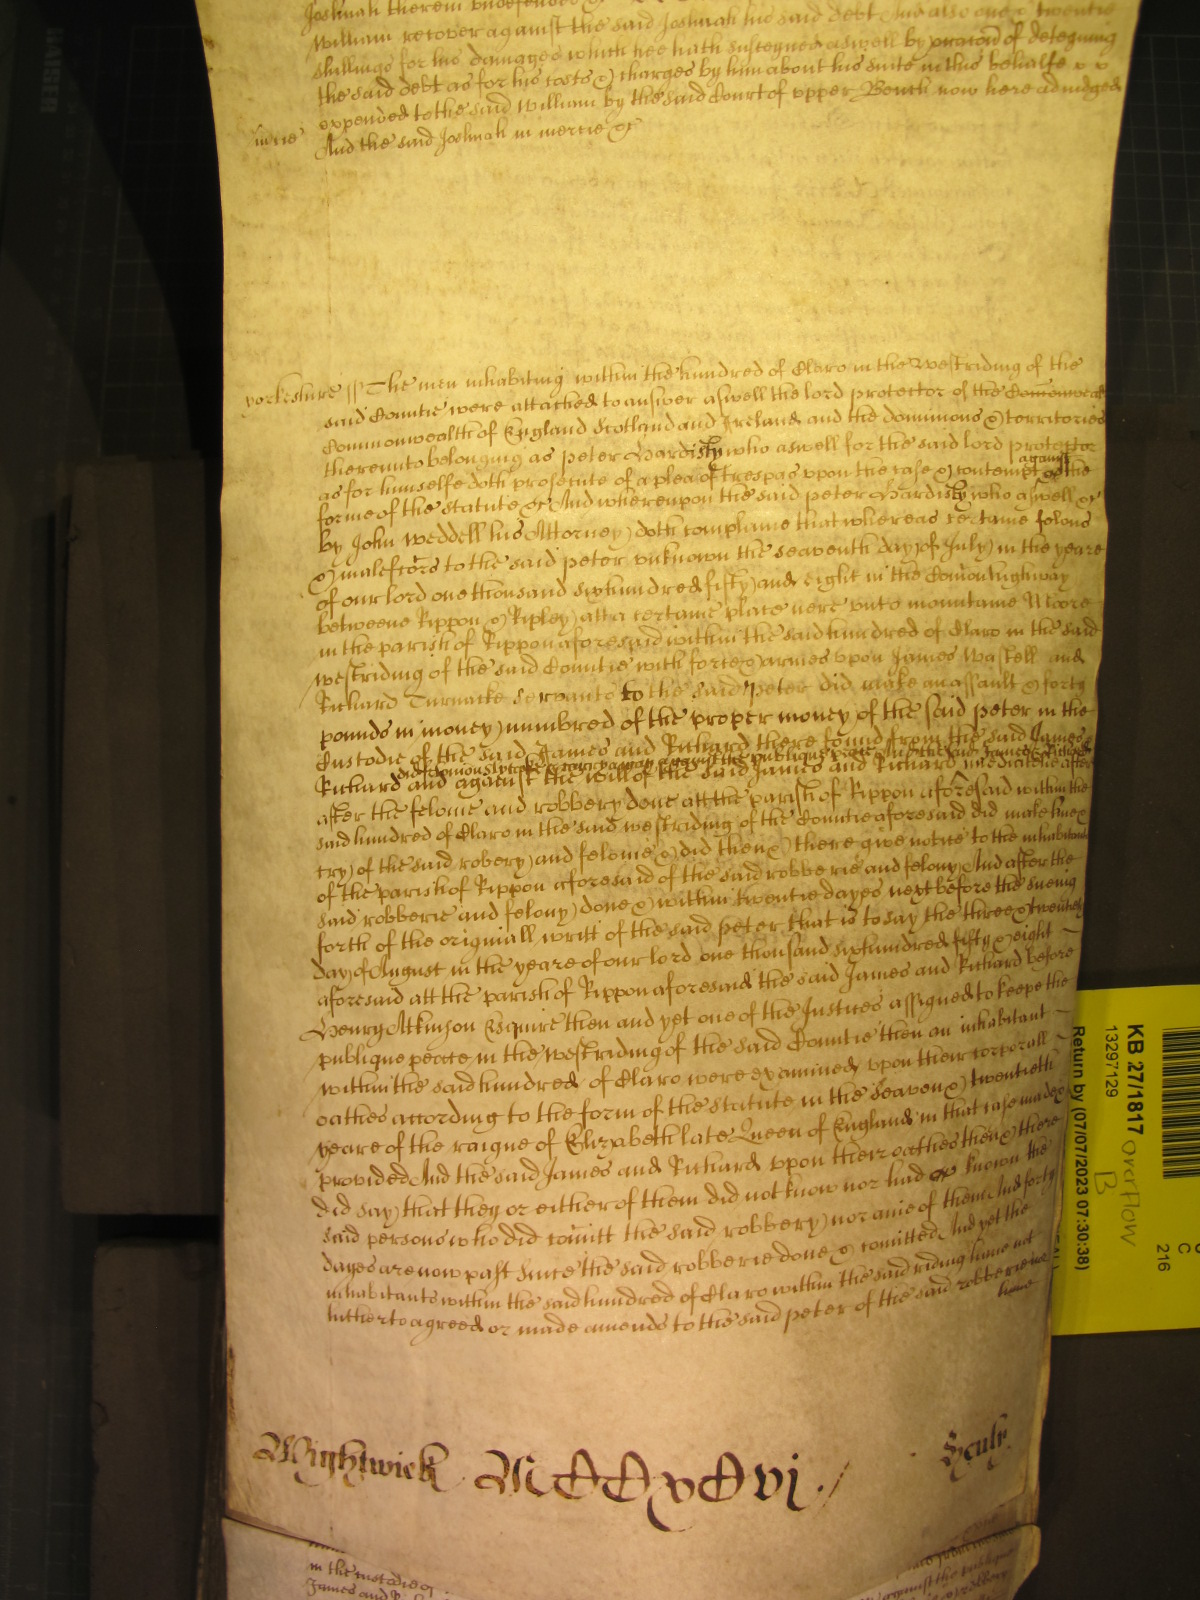 Joshuah therein undefended
William recover against the said Joshuah his said debt And also one & twentie
shillings for his damages which hee hath susteyned aswell by occasion of deteyning
the said debt as for his costs & charges by him about his suite in this behalfe
expended to the said William by the said Court of upper Bench now here adiudged
And the said Joshuah in mercie &c
in mie
yorkeshire ss The men inhabiting within the hundred of Claro in the westriding of the
said Countie were attached to answer aswell the lord protector of the
Commonwealth of England Scotland and Ireland and the dominions & territories
thereunto belonging as Peter Hardisty who aswell for the said lord protector
as for himselfe doth prosecute of a plea of trespas upon the case & contempt against the
forme of the statute &c And whereupon the said Peter Hardisty who aswell &c
by John Weddell his Attorney doth complaine that whereas certaine felons
& malefcors to the said Peter unknown the seaventh day of July in the yeare
of our lord one thousand sixhundred fifty and eight in the Comon highway
betweene Rippon & Ripley att a certaine place nere unto mountaine Moore
in the parish of Rippon aforesaid within the said hundred of Claro in the said
westriding of the said Countie with force & armes upon James Wastell and
Richard Turnacke servants to the said Peter did make an assault & forty
pounds in money numbred of the proper money of the said Peter in the
Custodie of the said James and Richard there found from the said James &
did feloniously take & carry away against the publique peace And the said James & Richard
Richard and against the will of the said James and Richard imediatelie after
after the felonie and robbery done att the parish of Rippon aforesaid within the
said hundred of Claro in the said westriding of the Countie aforesaid did make hue &
cry of the said robery and felonie & did then & there give notice to the inhabitants
of the parish of Rippon aforesaid of the said robberie and felony And after the
said robberie and felony done & within twentie dayes next before the sueing
forth of the originall writt of the said Peter that is to say the three & twentieth
day of August in the yeare of our lord one thousand sixhundred fifty & eight
aforesaid att the parish of Rippon aforesaid the said James and Richard before
Henry Atkinson Esquire then and yet one of the Justices assigned to keepe the
publique peace in the westriding of the said Countie then an inhabitant
within the said hundred of Claro were examined upon their corporall
oathes according to the form of the statute in the seaven & twentieth
yeare of the raigne of Elizabeth late Queen of England in that case made &
provided And the said James and Richard upon their oathes then & there
did say that they or either of them did not know nor had known the
said persons who did comitt the said robbery nor anie of them And forty
dayes are now past since the said robberie done & comitted And yet the
inhabitants within the said hundred of Claro within the said riding have not
hitherto agreed or made amends to the said Peter of the said robberie
Wightwick MCCxCvj
in the custodie of
James and
against the publique
KB 27/1817
overflow
B
13297129
Return by (07/07/2023 07:30:38)
C
216
KAISER